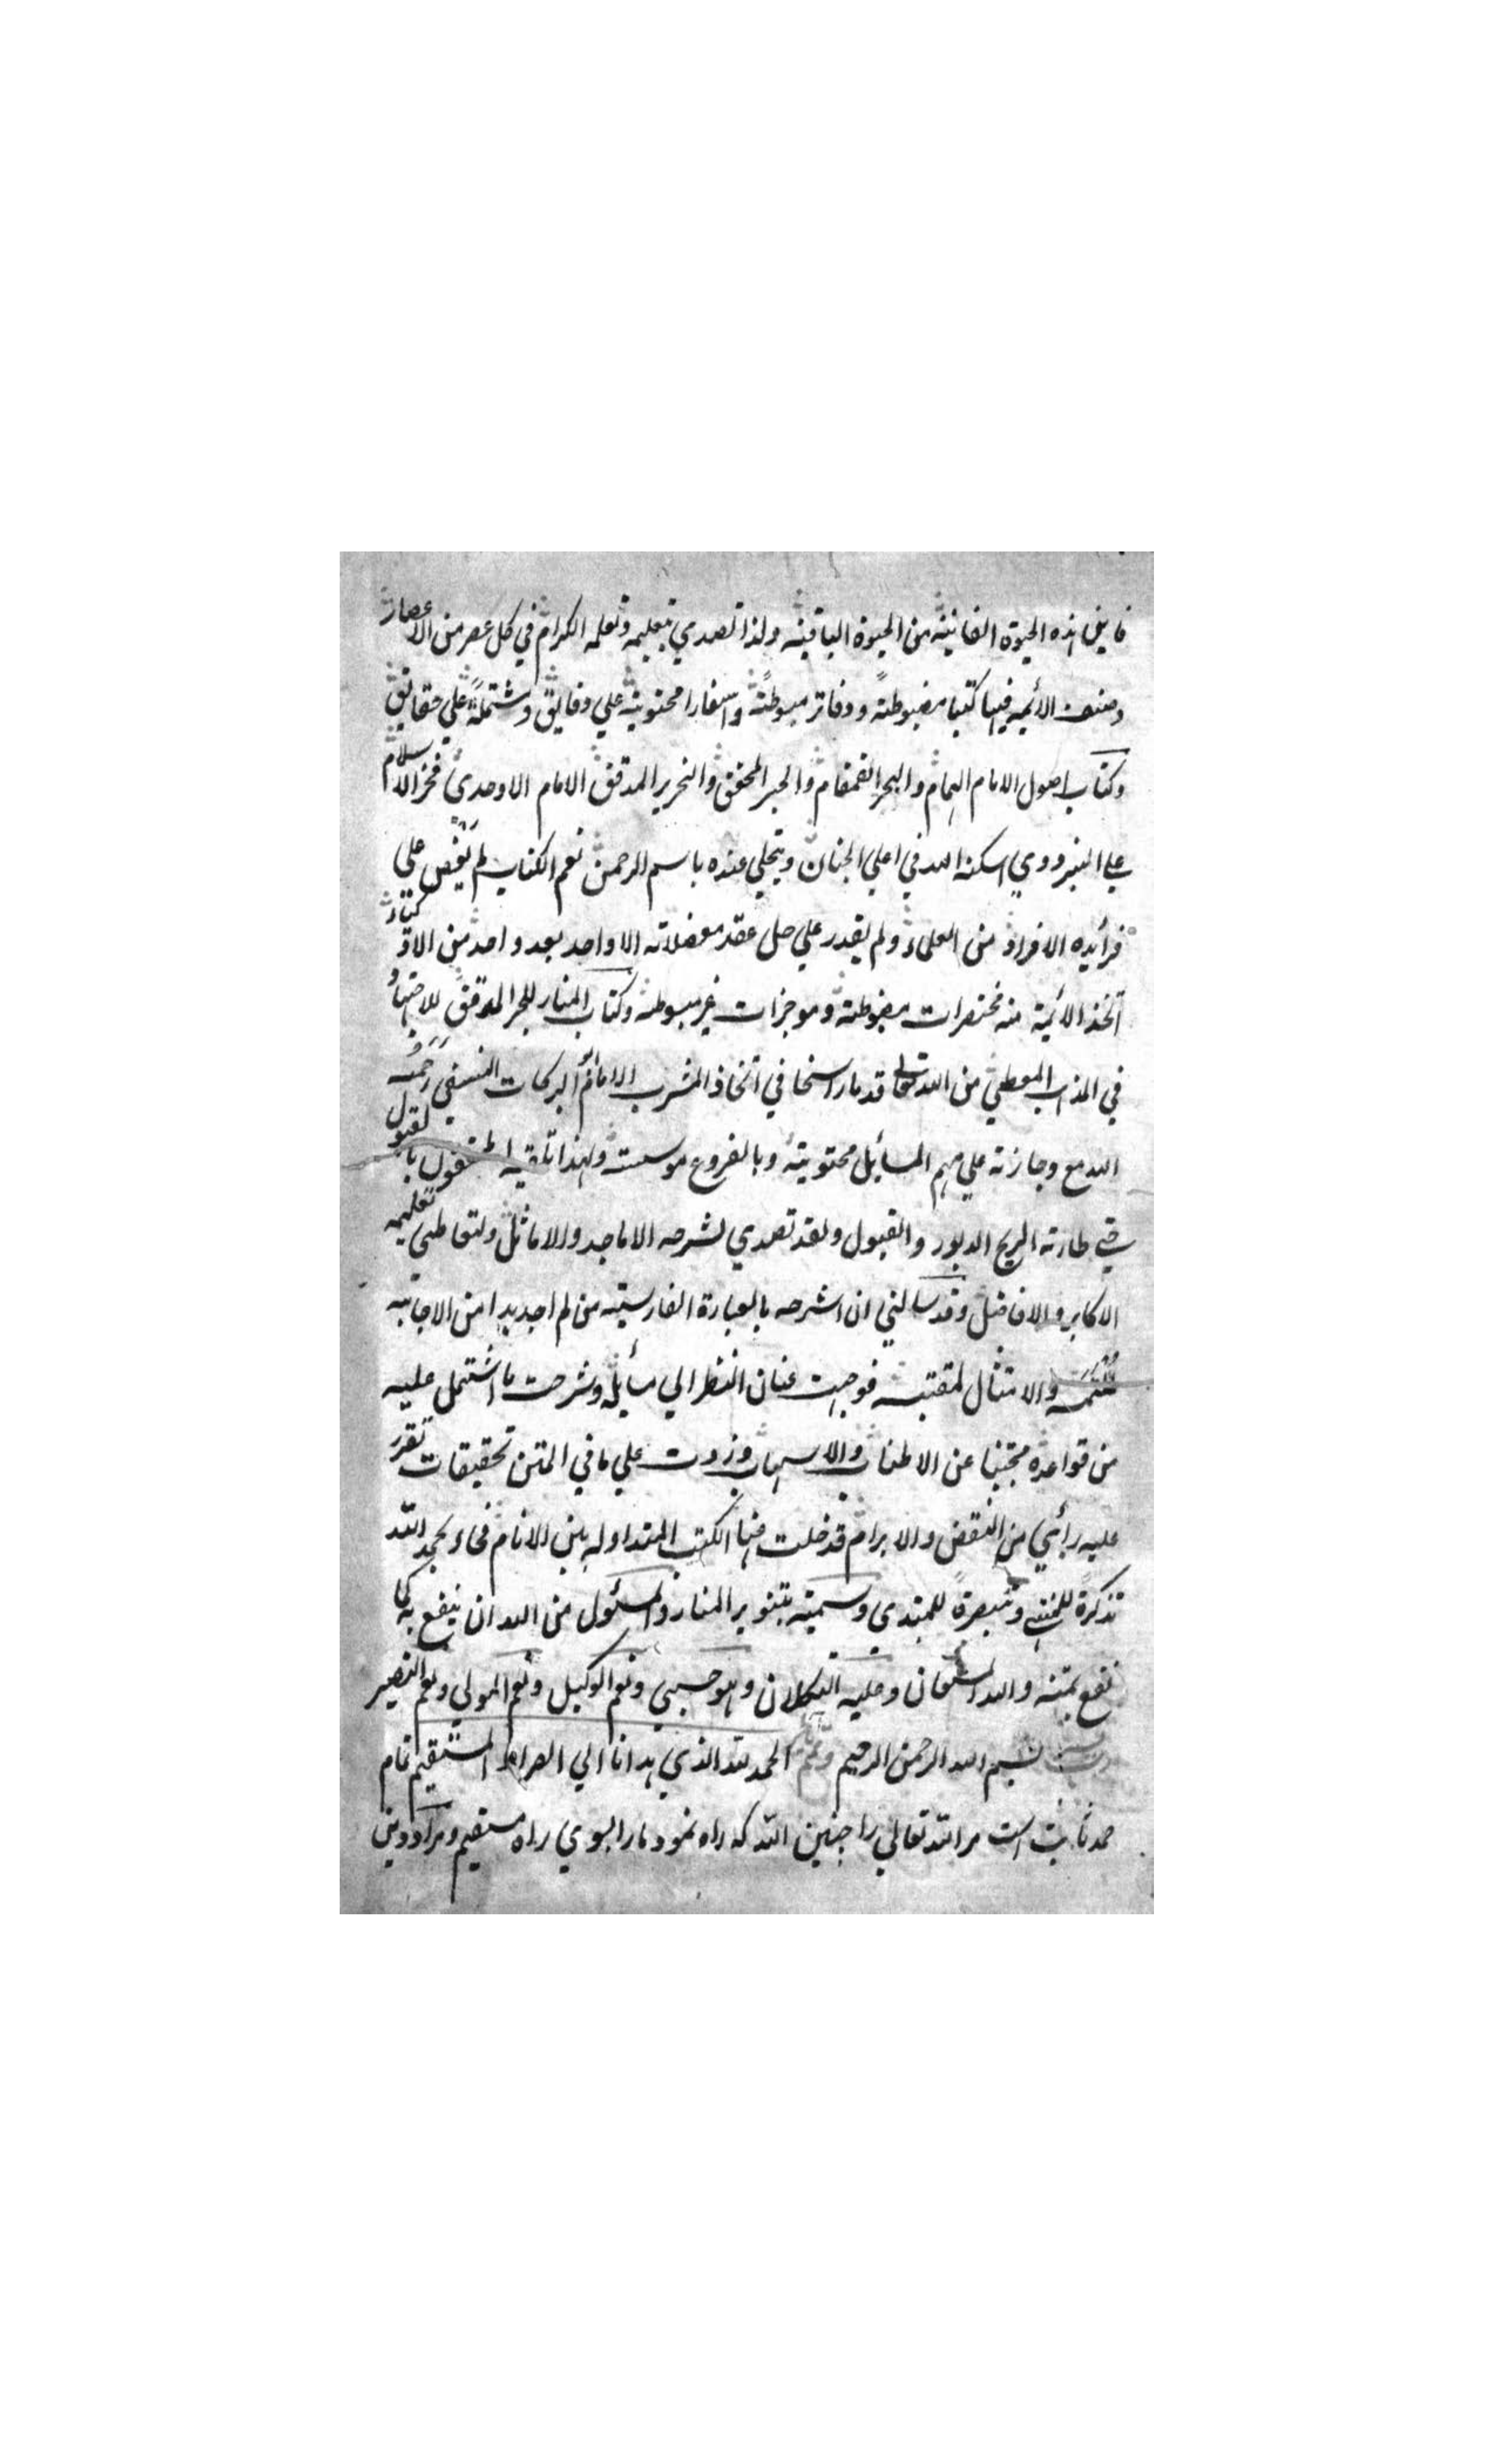 فايض هذه الحيوة الفانية من الحيوة الباقية ولذا تصدي بتعليمه وتعلمه الكرام في كل عصر من الاعصار
وصنف الائمه فيها كتبا مضبوطة ودفاتر مبسوطة واسفارا محتوية علي دقايق ومشتملة علي حقايق
وكتاب اصول الامام الهمام والبحر القمقام والحبر المحقق والنحرير المدقق الامام الاوحدي فخر الاسلام
علي البزدوي اسكنه الله في اعلي الجنان وتجلي عنده باسم الرحمن نعم الكتاب لم يغص علي
فرائده الا فراد من العلماء ولم يقدر علي حل عقد معضلاته الا واحد بعد واحد من الاوتاد
اتخذ الائمة منه مختصرات مضبوطة وموجزات غير مبسوطة وكتاب المنار للحبر المدقق
في المذاهب المعطي من الله تعالي قدما راسخا في اتخاذ المشرب الامام ابو البركات النسفي رحمه
الله مع وجازته علي مهم المسائل محتوية وبالفروع موسسة ولهذا تلقيه الفحول بالقبول
حتي طارته الريح الدبور والقبول ولقد تصدي لشرحه الاماجد والاماثل ولتعاطي تعليمه
الاكابر والافاضل وقد سالني ان اشرحه بالعبارة الفارسية من لم اجد بدا من الاجابة
والامتثال فوجهت عنان النظر الي مسائله وشرحت ما اشتمل عليه
من قواعده مجتنبا عن الاطناب والاسهاب وزدت علي ما في المتن تحقيقات تقرر
عليه رأيي من النقض والابرام قد خلت منها الكتب المتداوله بين الانام فجاء بحمد الله
تذكرة للمنتهي وتبصرة للمبتدي وسميته بتنوير المنار والمسئول من الله ان ينفع به كما
نفع بمتنه والله المستعان وعليه التكلان وهو حسبي ونعم الوكيل ونعم المولي ونعم النصير
بسم الله الرحمن الرحيم الحمد لله الذي هدانا الي الصراط المستقيم تمام
حمد ثابت است مر الله تعالي را چنين الله كه راه نمود مارا بسوي راه مستقيم ومراد دين